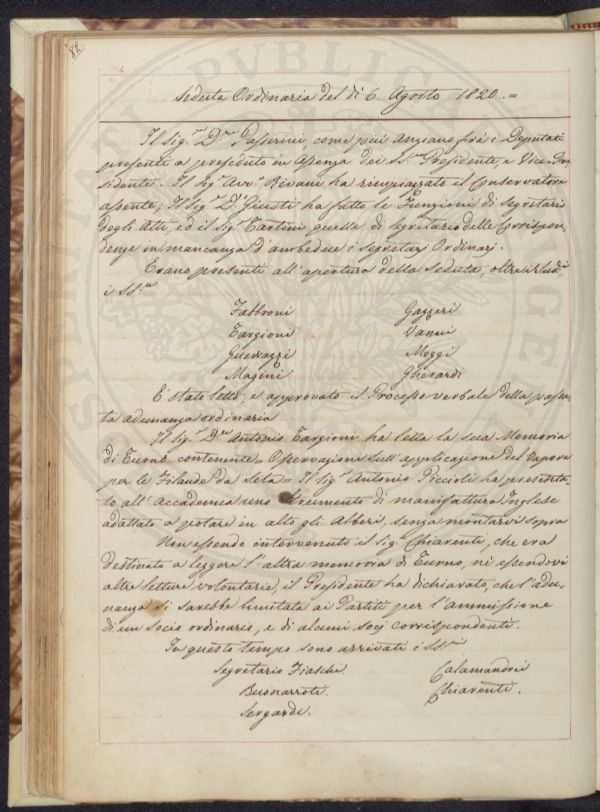 82
Seduta Ordinaria del dì 6. Agosto 1820. =
Il Sig.r D.re Passerini, come più Anziano frà i Deputati
presenti à preseduto in assenza dei SS.ri Presidente, e Vice-Pre-
sidente. Il Sig.r Avv.o Rivani ha rimpiazzato il Conservatore
assente; Il Sig.r D.r Giusti ha fatto le Funzioni di Segretario
degli Atti, ed il Sig.r Tartini quelle di Segretario delle Corrispon-
denze in mancanza d'ambedue i Segretarj Ordinarj.
Erano presenti all'apertura della Seduta, oltre i Sud.i
i SS.ri
Fabbroni Gazzeri
Targioni Vanni
Guerrazzi Mozzi
Magini Gherardi
E' stato letto, e approvato il Processo verbale della passa-
ta adunanza ordinaria
Il Sig.r D.re Antonio Targioni ha letta la sua Memoria
di Turno contenente = Osservazioni sull'applicazione del Vapore
per le Filande da Seta = Il Sig.r Antonio Piccioli ha presenta-
to all'Accademia uno Strumento di manifattura Inglese
adattato a potare in alto gli Alberi, senza montarvi sopra
Non essendo intervenuto il Sig.r Chiarenti, che era
destinato a leggere l'altra memoria di Turno, nè essendovi
altre letture volontarie, il Presidente ha dichiarato, che l'adu-
nanza si sarebbe limitata ai Partiti per l'ammissione
di un Socio ordinario, e di alcuni socj corrispondenti.
In questo tempo sono arrivati i SS.ri
Segretario Fiaschi Calamandrei
Buonarroti. Chiarenti.
Sergardi.